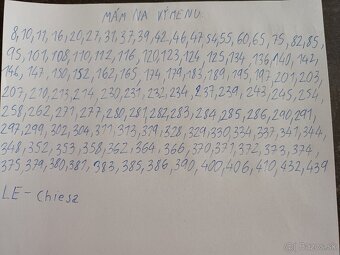 MÁM NA VÝMENU:
8,10,11,16,20,27,31,37,39,42,46,47,54,55,60,65,75,82,85,
95,101,108,110,112,116,120,123,124,125,134,136,140,142,
146,147,150,152,162,165,174,179,183,189,195,197,201,203,
207,210,213,214,230,231,232,234,237,239,243,245,254,
258,262,271,277,280,281,282,283,284,285,286,290,291,
297,299,302,304,311,313,319,328,329,330,334,337,341,344,
348,352,353,358,362,364,366,370,371,372,373,374,
375,379,380,381,383,385,386,390,400,406,410,432,439
LE - Chiesa
© Bazos.sk